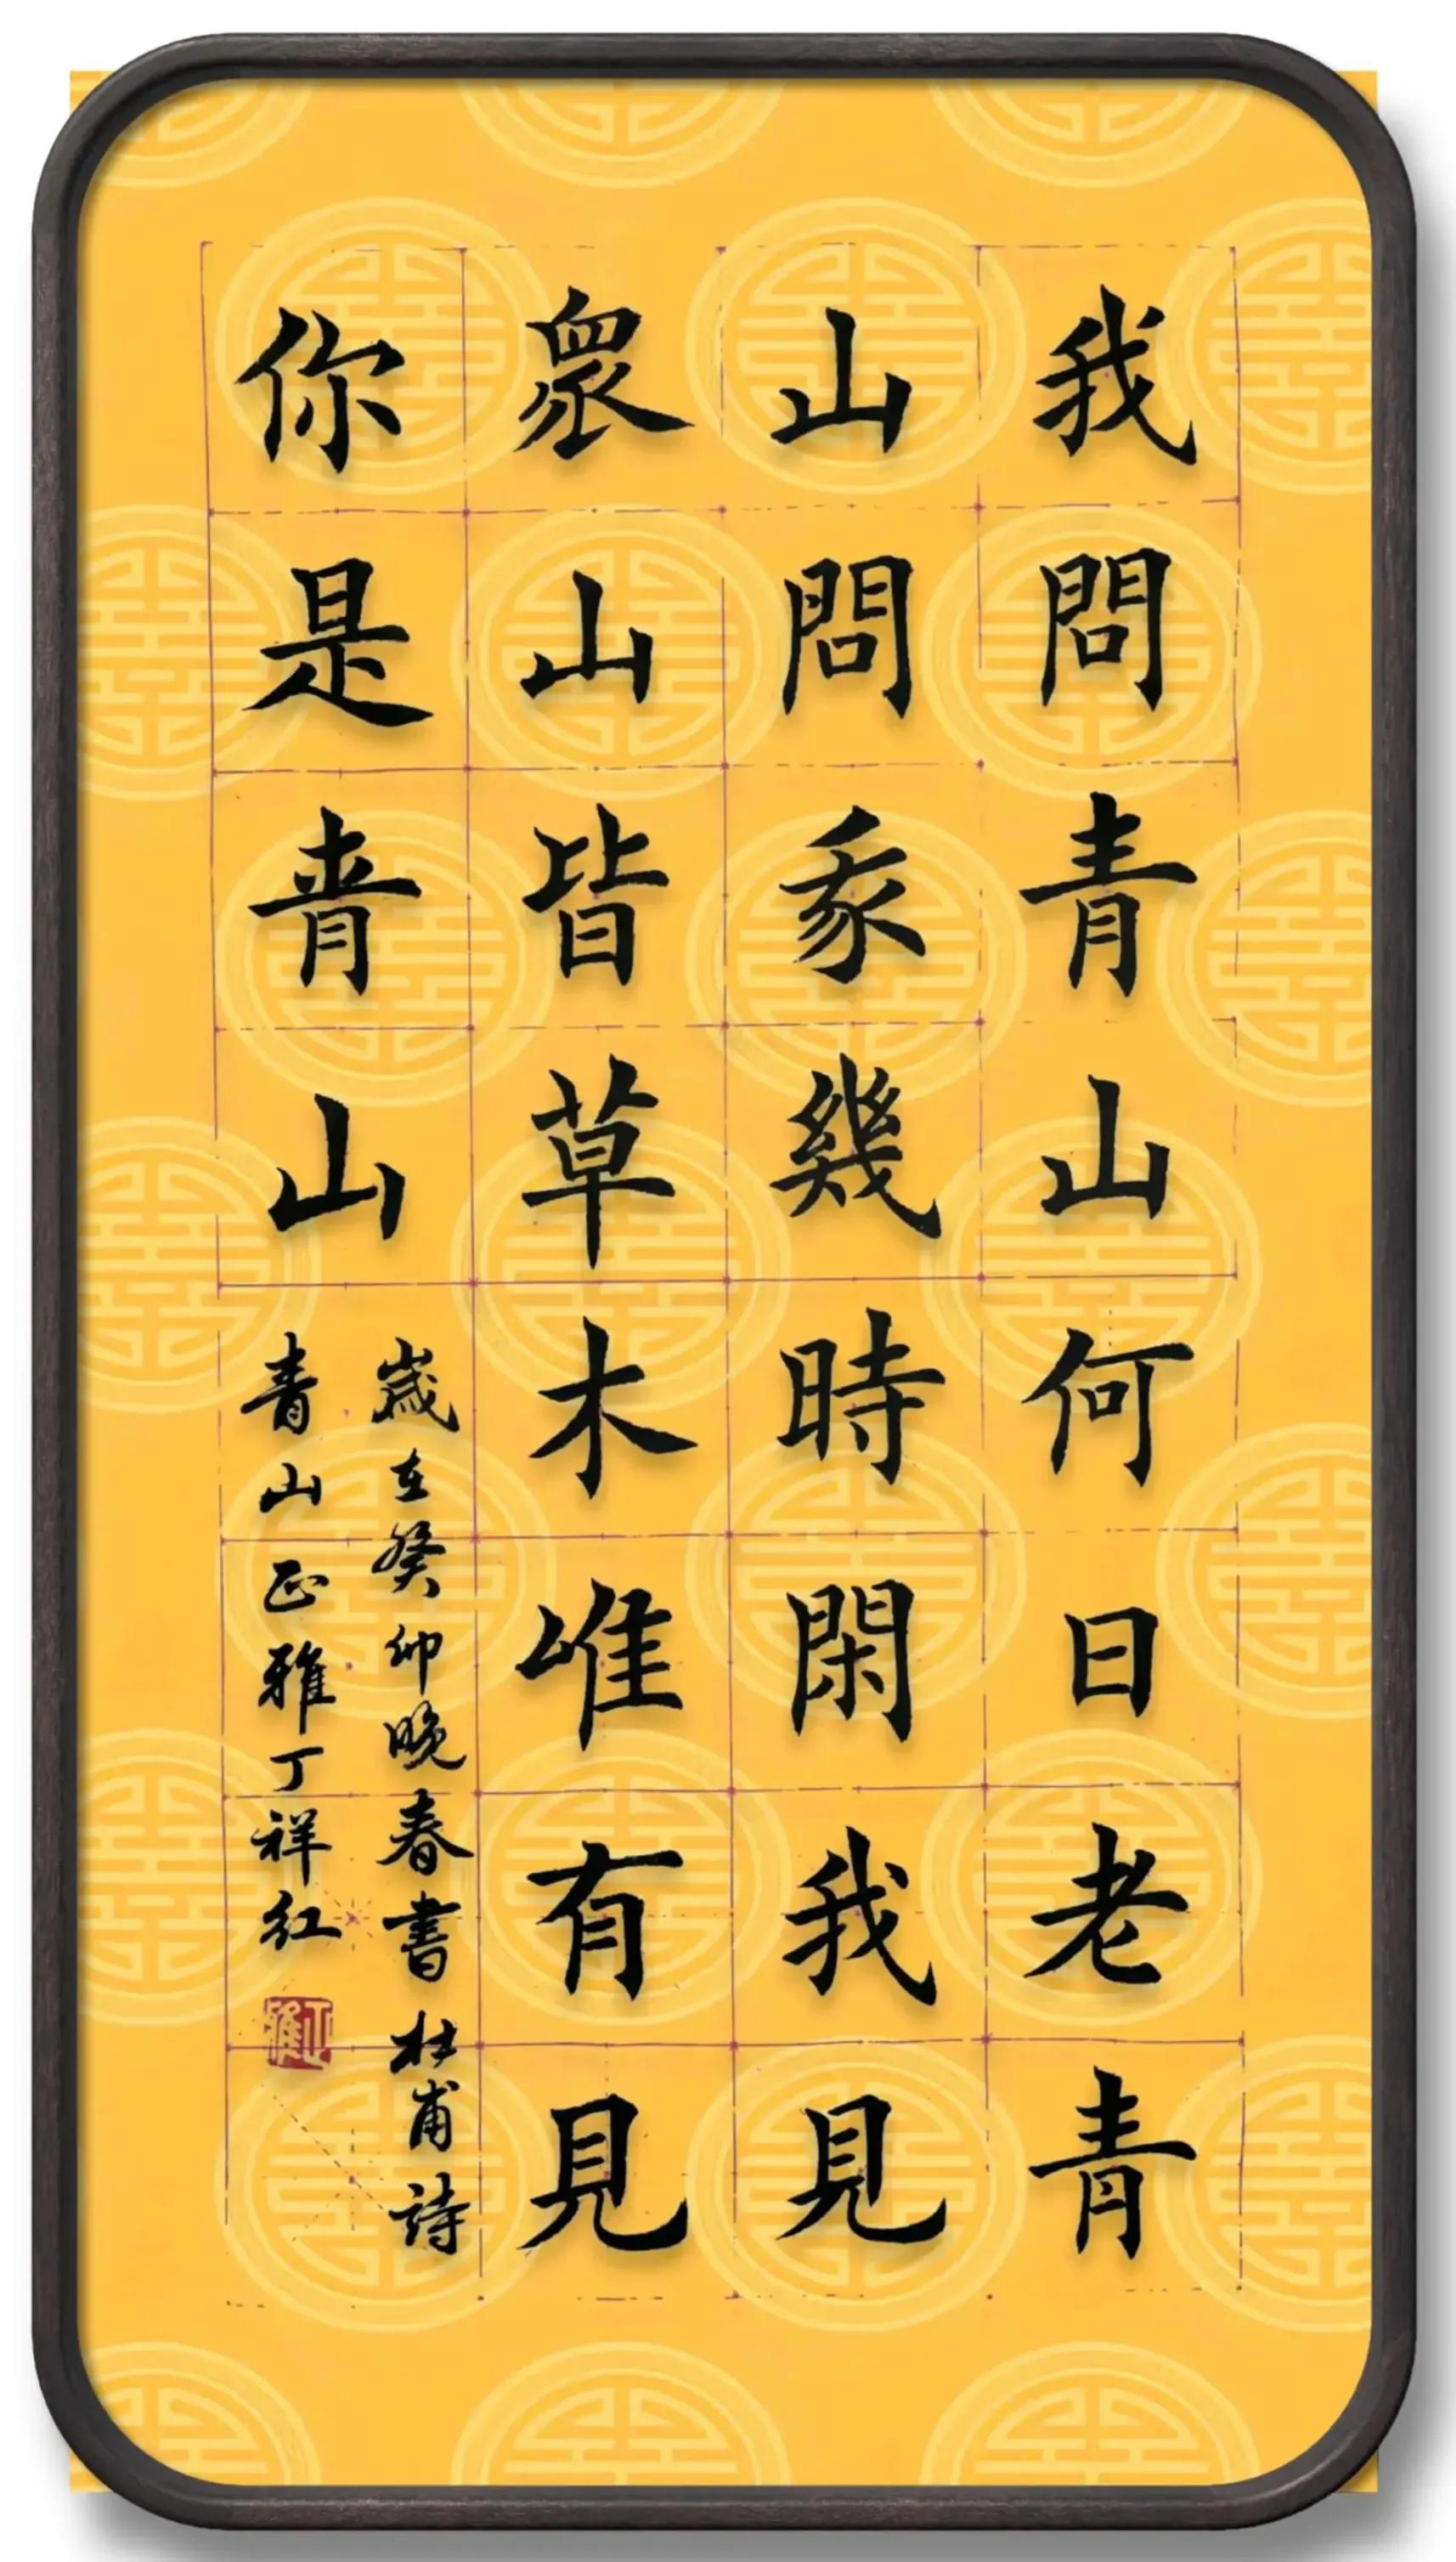 我問青山何日老青
山問我幾時閑我見
眾山皆草木唯有見
你是青山
歲在癸卯晚春書杜甫詩
青山正雅丁祥红